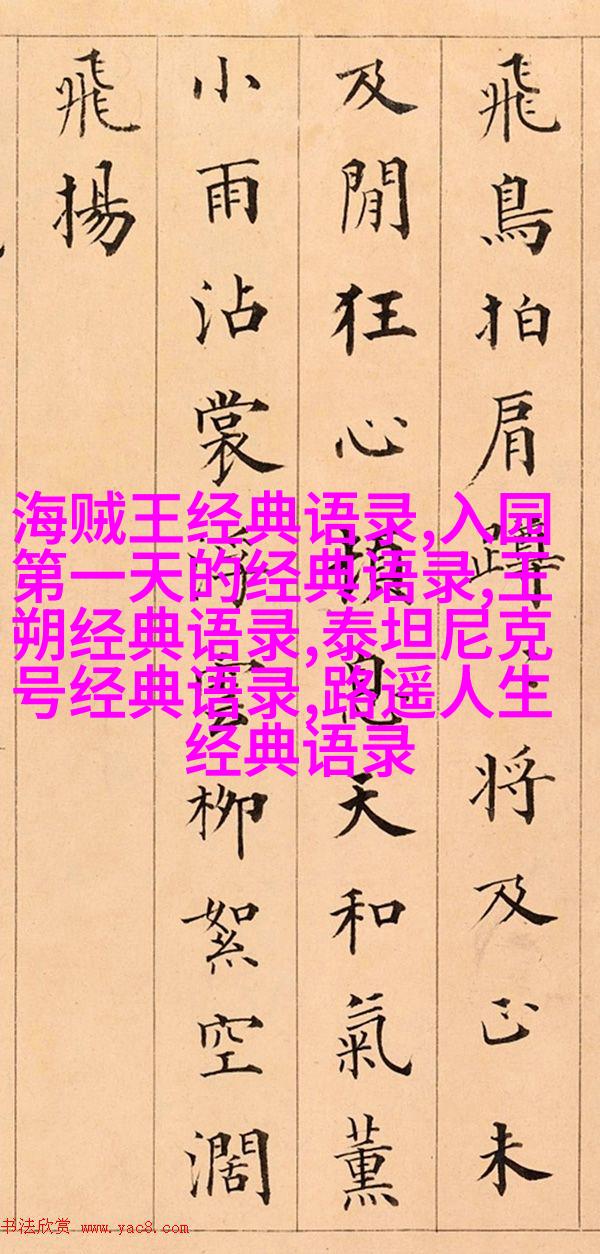 飛鳥拍肩將及正未
及閒狂心頓息天和氣薰
小雨沾裳雲柳絮空濶
飛揚
海贼王经典语录,入园
第一天的经典语录,王
朔经典语录,泰坦尼克
号经典语录,路遥人生
经典语录
书法欣赏 www.yac8.com